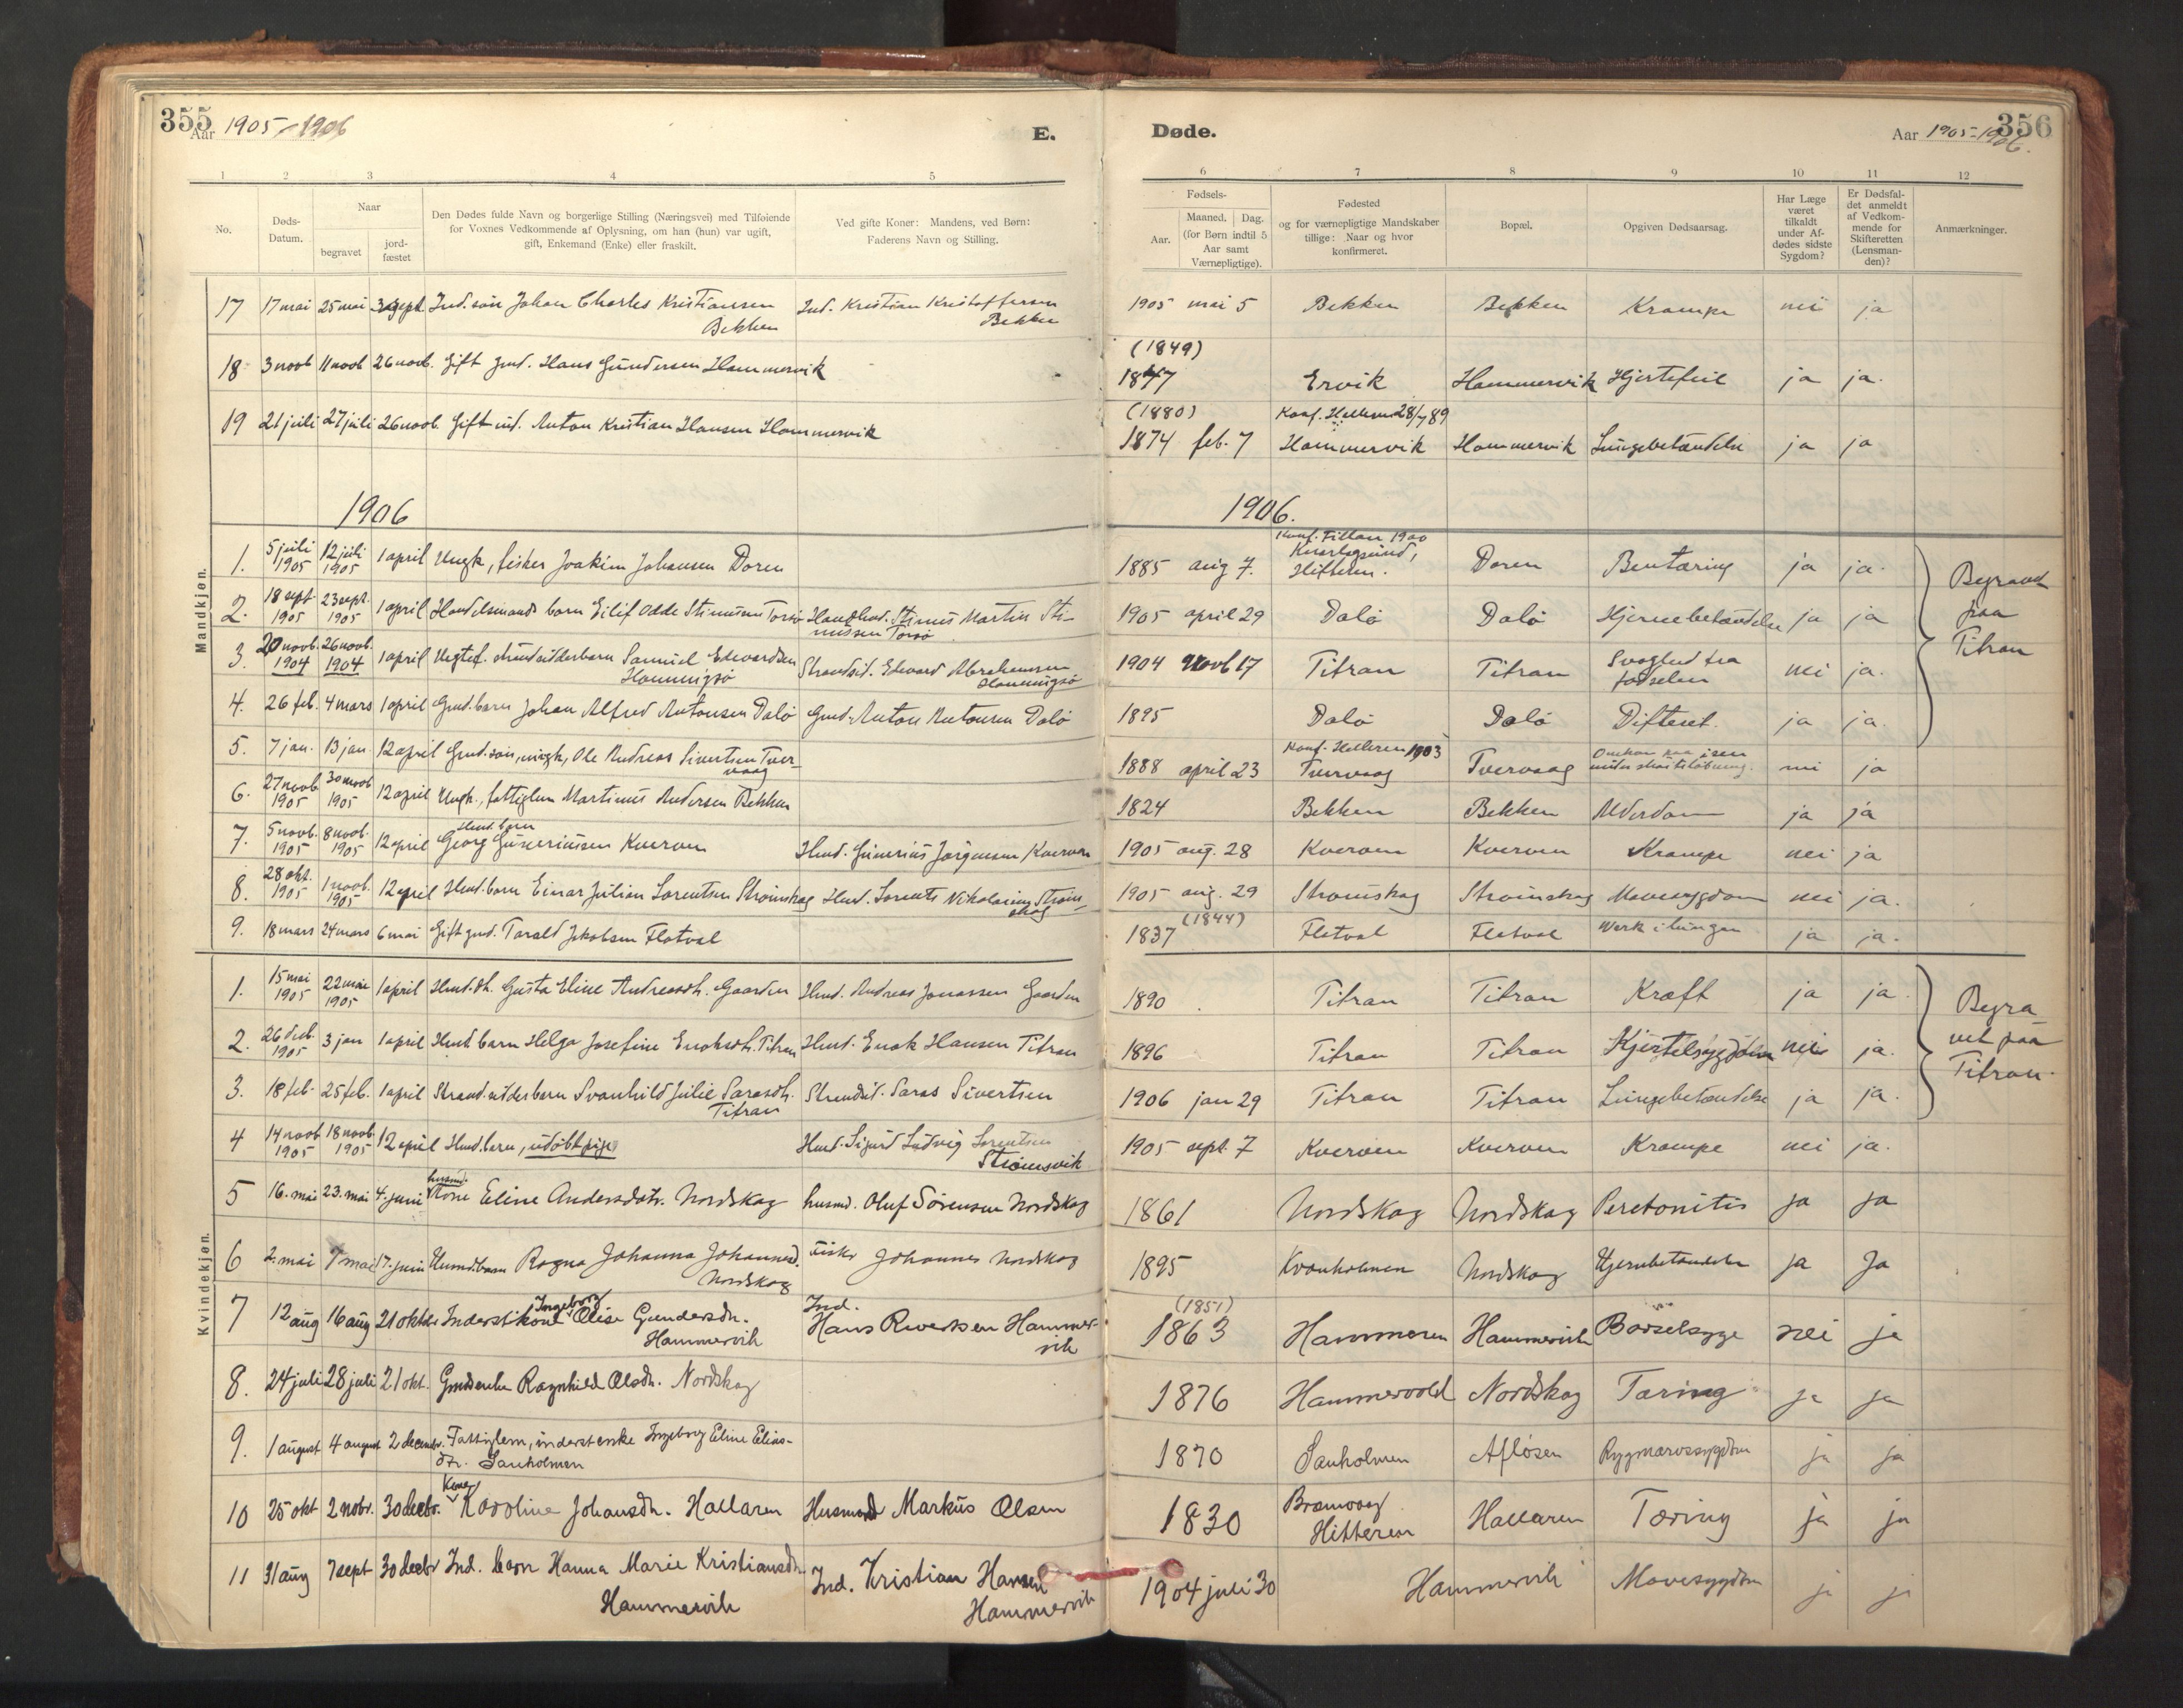 355
Aar 1905-1906
E.
Døde.
Aar 1905-1906.
356
1 2 3 4 5 6 7 8 9 10 11 12
No.
Døds-Datum.
Naar
begravet
jord-fæstet
Den Dødes fulde Navn og borgerlige Stilling (Næringsvei) med Tilføiende
for Voxnes Vedkommende af Oplysning, om han (hun) var ugift,
gift, Enkemand (Enke) eller fraskilt.
Ved gifte Koner: Mandens, ved Børn:
Faderens Navn og Stilling.
Fødsels-
Aar.
Maaned. Dag.
(for Børn indtil 5
Aar samt
Værnepligtige).
Fødested
og for værnepligtige Mandskaber
tillige: Naar og hvor
konfirmeret.
Bopæl.
Opgiven Dødsaarsag.
Har Læge
været
tilkaldt
under Af-
dødes sidste
Sygdom?
Er Dødsfal-
det anmeldt
af Vedkom-
mende for
Skifteretten
(Lensman-
den)?
Anmærkninger.
Mandkjøn.
17 17 mai 25 mai sept. Ind. søn Johan Charles Kristiansen Bekken Ind. Kristian Kristoffersen Bekken 1905 mai 5 Bekken Bekken Krampe nei ja
18 3 novb 11 novb 26 novb. Gift Gmd. Hans Gundersen Hammervik (1849) 1847 Ervik Hammervik Hjertefeil ja ja.
19 21 juli 27 juli 26 novb. Gift ind. Anton Kristian Hansen Hammervik (1880) 1874 feb. 7 Konf. 28/7 89 Hammervik Hammervik Lungebetændelse ja ja
1906
1906.
1. 5 juli 1905 12 juli 1905 1 april Ungk, fisker Joakim Johansen Doren 1885 aug 7. Konf. Fillan 1900 Hitteren. Doren Bentæring ja ja.
2. 18 sept 1905 23 sept. 1905 1 april Handelsmands barn Eilif Odde Stinussen Torsø Handlend. Stinus Martin Stinussen Torsø 1905 april 29 Dalø Dalø Hjernebetændelse ja ja
3. 20 novb. 1904 26 novb. 1904 1 april Ungtef. strandsidderbarn Samuel Edvardsen Hanningsø Strandsid. Edvard Abrahamsen Hanningsø 1904 Novb 17 Titran Titran Svaghed fra fødselen nei ja.
4. 26 feb. 4 mars 1 april Gmd. barn Johan Alfred Antonsen Dalø Gmd. Anton Antonsen Dalø 1895 Dalø Dalø Difterit. ja ja.
Begravet
paa
Titran
5. 7 jan. 13 jan. 12 april Gmd. søn, ungk, Ole Andreas Sivertsen Tvervaag 1888 april 23 Konf. Halleren 1903 Tvervaag Tvervaag Omkom paa isen under skøiteløbning. nei ja
6. 27 novb 1905 30 novb 1905 12 april Ungk., fattiglem Martinus Andersen Bekken 1824 Bekken Bekken Alderdom ja ja
7. 5 novb. 1905 8 novb. 1905 12 april Husd. barn Georg Guneriussen Kverven Hmd. Gunerius Jørgensen Kverven 1905 aug. 28 Kverven Kverven Krampe nei ja
8. 28 okt. 1905 1 novb. 1905 12 april Hmd. barn Einar Julian Lorentsen Strømskag Hmd. Lorents Nikolaisen Strømskag 1905 aug. 29 Strømskag Strømskag Mavesygdom nei ja.
9. 18 mars 24 mars 6 mai Gift gmd. Tarald Jakobsen Flatval 1837 (1844) Flatval Flatval Værk i lungen ja ja.
Kvindekjøn.
1. 15 mai 1905 22 mai 1905 1 april Hmd. dt. Gusta Eline Andreasdt. Gaarden Hmd. Andreas Jonassen Gaarden 1890 Titran Titran Kræft ja ja.
2. 26 decb. 1905 3 jan 1 april Hmd. barn Helga Josefine Enoksdt. Titran Hmd. Enok Hansen Titran 1896 Titran Titran Kjertelsygdom nei ja.
3. 18 feb. 25 feb. 1 april Strandsidderbarn Svanhild Julie Sarasdt. Titran Strandsid. Saras Sivertsen 1906 jan 29 Titran Titran Lungebetændelse ja ja.
Begra
vet paa
Titran.
4 14 novb 1905 18 novb. 1905 12 april Hmd. barn, udøbt pige Hmd. Sigurd Ludvig Lorentsen Strømsvik 1905 sept. 7 Kverven Kverven Krampe nei ja.
5 16. mai 23. mai 4. juni husmd. Kone Eline Andersdatr. Nordskag husmd. Oluf Sørensen Nordskag 1861 Nordskag Nordskag Peretonitis ja ja
6 2. mai 7 mai 17. juni Husmd. barn Ragna Johanna Johannesd. Nordskag Fisker Johannes Nordskag 1895 Kvanholmen Nordskag Hjernebetændelse ja Ja
7 12 aug 16 aug 21 oktbr Inderstkone Ingeborg Olise Gundersdtr. Hammervik Ind. Hans Rivertsen Hammervik (1851) 1863 Hammeren Hammervik Barselsyge nei ja
8. 24 juli 28 juli 21 okt. Gmdenke Ragnhild Olsdtr. Nordskag 1876 Hammervold Nordskag Tæring ja ja
9. 1 august 4 august 2 decembr. Fattiglem, inderstenke Ingeborg Eline Eliasdtr. Sauholmen 1870 Sauholmen Afløsen Rygmarvssygdom ja ja
10 25 okt 2 nobr. 30 decbr. Kone Karoline Johansdtr. Hallaren Husmand Markus Olsen 1830 Bramvaag Hitteren Hallaren Tæring ja ja
11 31 aug 7 sept 30 decbr Ind. barn Hanna Marie Kristiansdtr. Hammervik Ind. Kristian Hansen Hammervik 1904 juli 30 Hammervik Mavesygdom ja ja